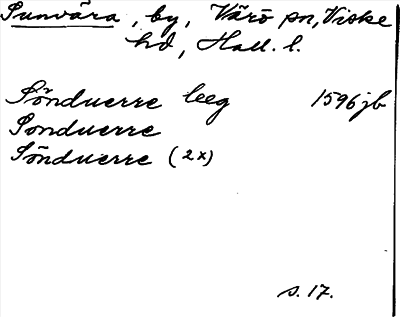 Sunvära, by, Värö sn, Viske
hd, Hall. l.
Sönduerre leeg 1596 jb
Sonduerre
Sönduerre (2x)
s. 17.